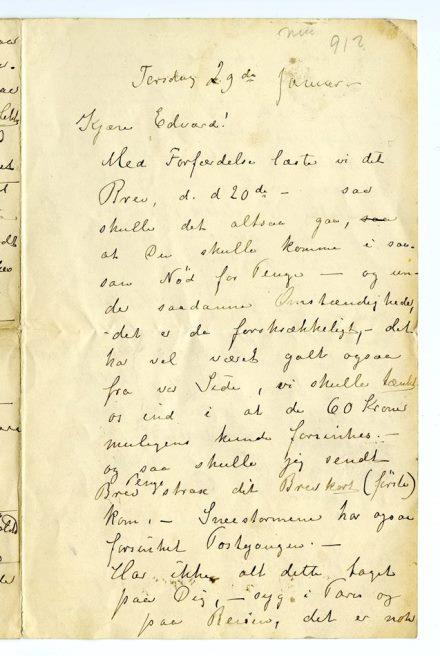 912
Torsdag 29de Januar
Kjære Edvard!
Med Forfærdelse læste vi dit
Brev, d. d 20de – saa
skulle det altsaa gaa, saa
at Du skulle komme i saa-
dan Nød for Penge – og un-
der saadanne Omstændigheder,
– det er da forskrækkeligt, – det
har vel været galt ogsaa
fra vor Side, vi skulle tænkt
os ind i at de 60 Kroner
muligens kunde forsinkes. –
og saa skulle jeg sendt
Penge
Brev strax dit Brevkort (første)
kom. – Sneestormene har ogsaa
forsinket Postgangen. –
Har ikke alt dette taget
paa Dig, – syg i Paris og
paa Reisen, det er nok